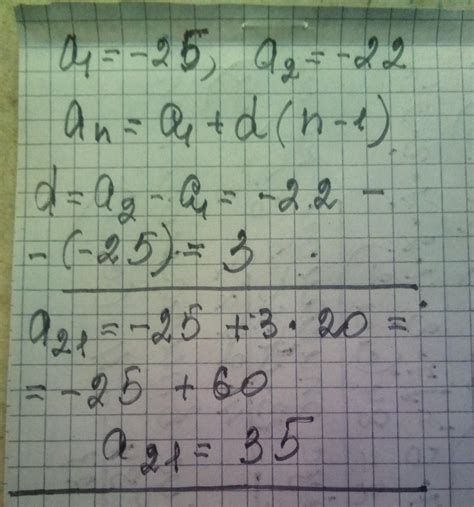 a₁ = -25, a₂ = -22
aₙ = a₁ + d(n-1)
d = a₂ - a₁ = -22 -
- (-25) = 3
a₂₁ = -25 + 3 · 20 =
= -25 + 60
a₂₁ = 35